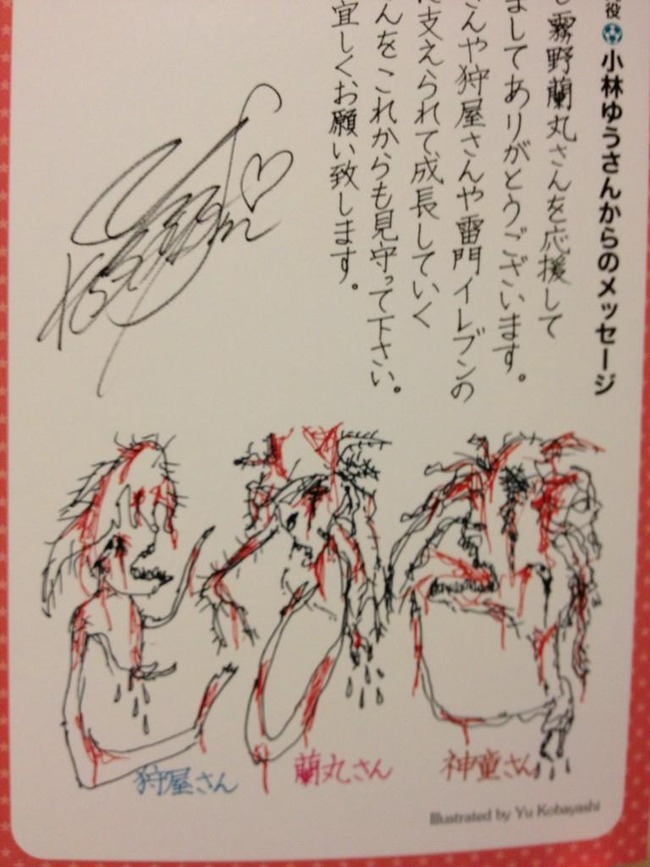 役 小林ゆうさんからのメッセージ
霧野蘭丸さんを応援して
ましてありがとうございます。
んや狩屋さんや雷門イレブンの
支えられて、成長していく
んをこれからも見守って下さい。
宜しくお願い致します。
狩屋さん
蘭丸さん
神童さん
Illustrated by Yu Kobayashi